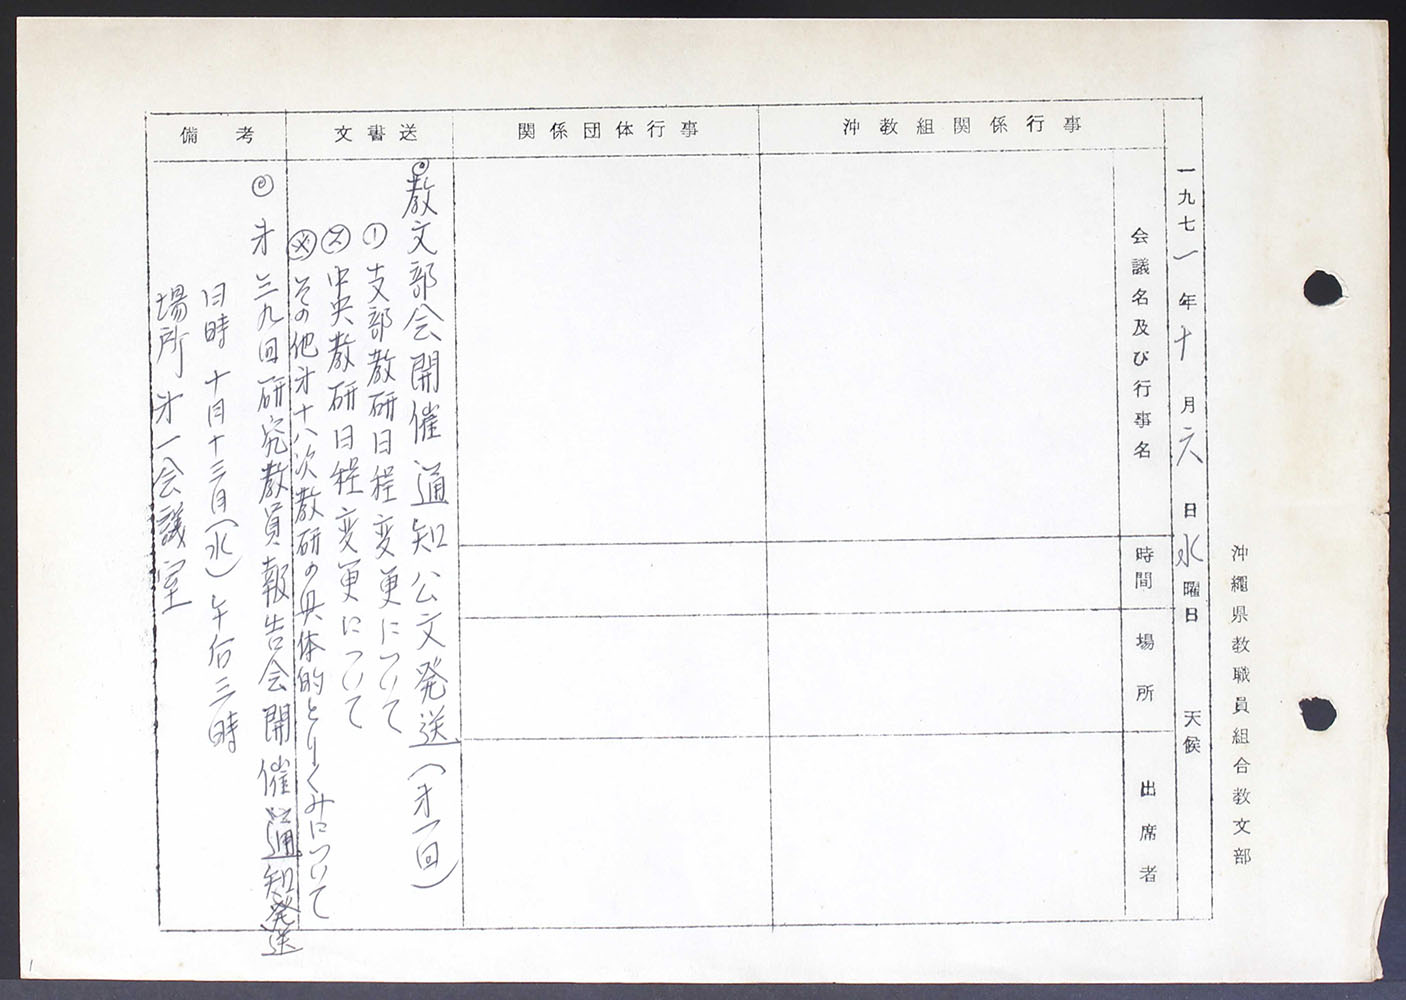 沖縄県教職員組合教文部
一九七一年十月六日水曜日 天候
会議名及び行事名
時間
場所
出席者
沖教組関係行事
関係団体行事
文書送
◎教文部会開催通知公文発送(才一回)
① 支部教研日程変更について
② 中央教研日程変更について
その他才十八次教研の具体的とりくみについて
備考
◎ 才三九回研究教員報告会開催通知発送
日時 十月十三日(水)午后三時
場所 才一会議室